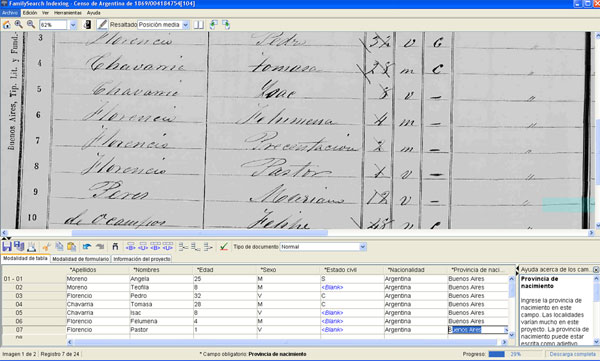 FamilySearch Indexing - Censo de Argentina de 1869/004184754[104]
Archivo Edición Ver Herramientas Ayuda
62% Resaltado Posición media
Buenos Aires, Tip. Lit. y Fund.
3 Florencio Pedro 32 v c
4 Chavarria Tomasa 28 m c
5 Chavarria Isac 8 v –
6 Florencio Felumena 4 m –
7 Florencio Precentacion 2 m –
8 Florencio Pastor 1 v –
9 Peres Mariano 12 v –
10 de Ocampos Felipe v c
Tipo de documento Normal
Modalidad de tabla Modalidad de formulario Información del proyecto
*Apellidos *Nombres *Edad *Sexo *Estado civil *Nacionalidad *Provincia de naci...
01 - 01 Moreno Angela 25 M S Argentina Buenos Aires
02 Moreno Teofila 8 M <Blank> Argentina Buenos Aires
03 Florencio Pedro 32 V C Argentina Buenos Aires
04 Chavarria Tomasa 28 M C Argentina Buenos Aires
05 Chavarria Isac 8 V <Blank> Argentina Buenos Aires
06 Florencio Felumena 4 M <Blank> Argentina Buenos Aires
07 Florencio Pastor 1 V <Blank> Argentina Buenos Aires
08
Ayuda acerca de los cam...
Provincia de
nacimiento
Ingrese la provincia de
nacimiento en este
campo. Las localidades
varían mucho en este
proyecto. La provincia de
nacimiento puede estar
escrita como adjetivo
Imagen 1 de 2 Registro 7 de 24 * Campo obligatorio: Provincia de nacimiento Progreso: 29% Descarga completa